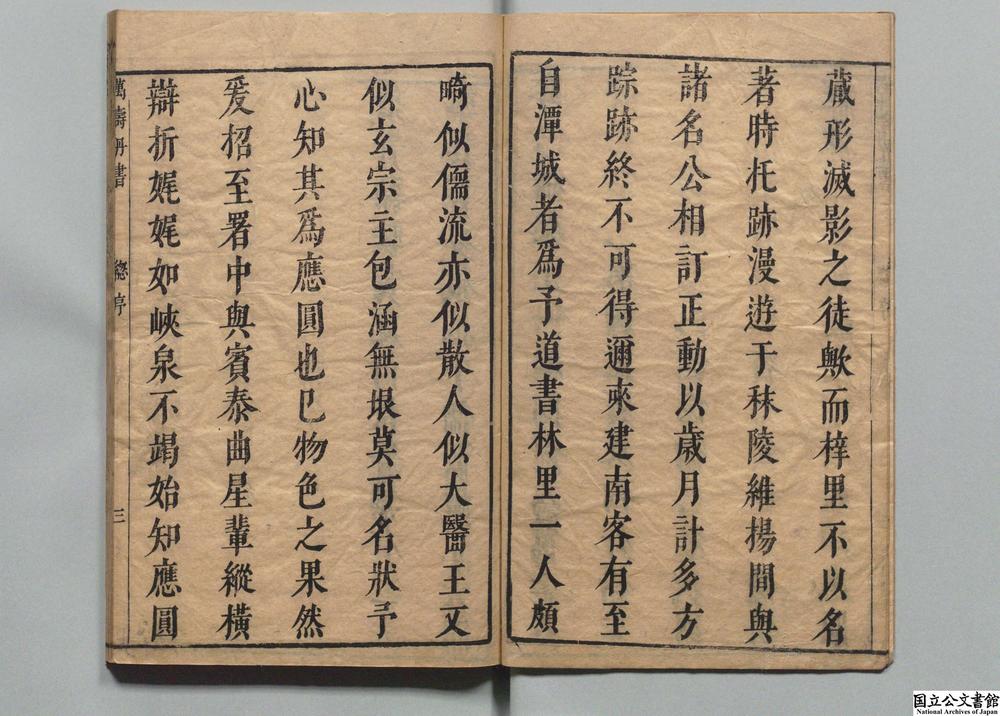 蔵形滅影之徒歟而梓里不以名
著時托跡漫遊于秣陵維揚間與
諸名公相訂正動以歳月計多方
踪跡終不可得邇來建南客有至
自潭城者爲予道書林里一人頗
畸似儒流亦似散人似大醫王又
似玄宗主包涵無垠莫可名狀予
心知其爲應圓也巳物色之果然
爰招至署中與賓泰曲星軰縱橫
辯折娓娓如峽泉不竭始知應圓
萬壽丹書 總序 三
国立公文書館
National Archives of Japan